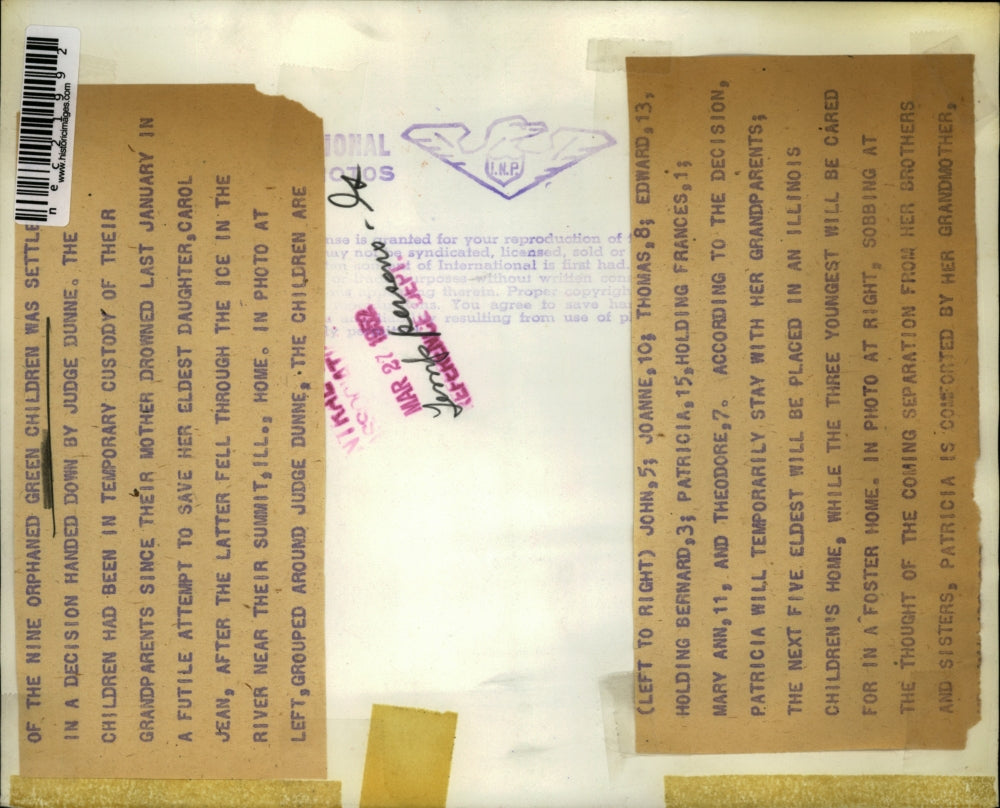 OF THE NINE ORPHANED GREEN CHILDREN WAS SETTLE
IN A DECISION HANDED DOWN BY JUDGE DUNNE. THE
CHILDREN HAD BEEN IN TEMPORARY CUSTODY OF THEIR
GRANDPARENTS SINCE THEIR MOTHER DROWNED LAST JANUARY IN
A FUTILE ATTEMPT TO SAVE HER ELDEST DAUGHTER,CAROL
JEAN, AFTER THE LATTER FELL THROUGH THE ICE IN THE
RIVER NEAR THEIR SUMMIT,ILL., HOME. IN PHOTO AT
LEFT,GROUPED AROUND JUDGE DUNNE, THE CHILDREN ARE
(LEFT TO RIGHT) JOHN,5; JOANNE,10; THOMAS,8; EDWARD,13;
HOLDING BERNARD,3; PATRICIA,15,HOLDING FRANCES,1;
MARY ANN,11, AND THEODORE,7. ACCORDING TO THE DECISION,
PATRICIA WILL TEMPORARILY STAY WITH HER GRANDPARENTS;
THE NEXT FIVE ELDEST WILL BE PLACED IN AN ILLINOIS
CHILDREN'S HOME, WHILE THE THREE YOUNGEST WILL BE CARED
FOR IN A FOSTER HOME. IN PHOTO AT RIGHT, SOBBING AT
THE THOUGHT OF THE COMING SEPARATION FROM HER BROTHERS
AND SISTERS, PATRICIA IS COMFORTED BY HER GRANDMOTHER,
nec21992
www.historicimages.com
IONAL
OTOS
I.N.P.
nse is granted for your reproduction of
ay not be syndicated, licensed, sold or
of International is first had.
rposes—without written con
ng therein. Proper copyrigh
You agree to save ha
resulting from use of p
MAR 27 1952
REFERENCE DEPT.